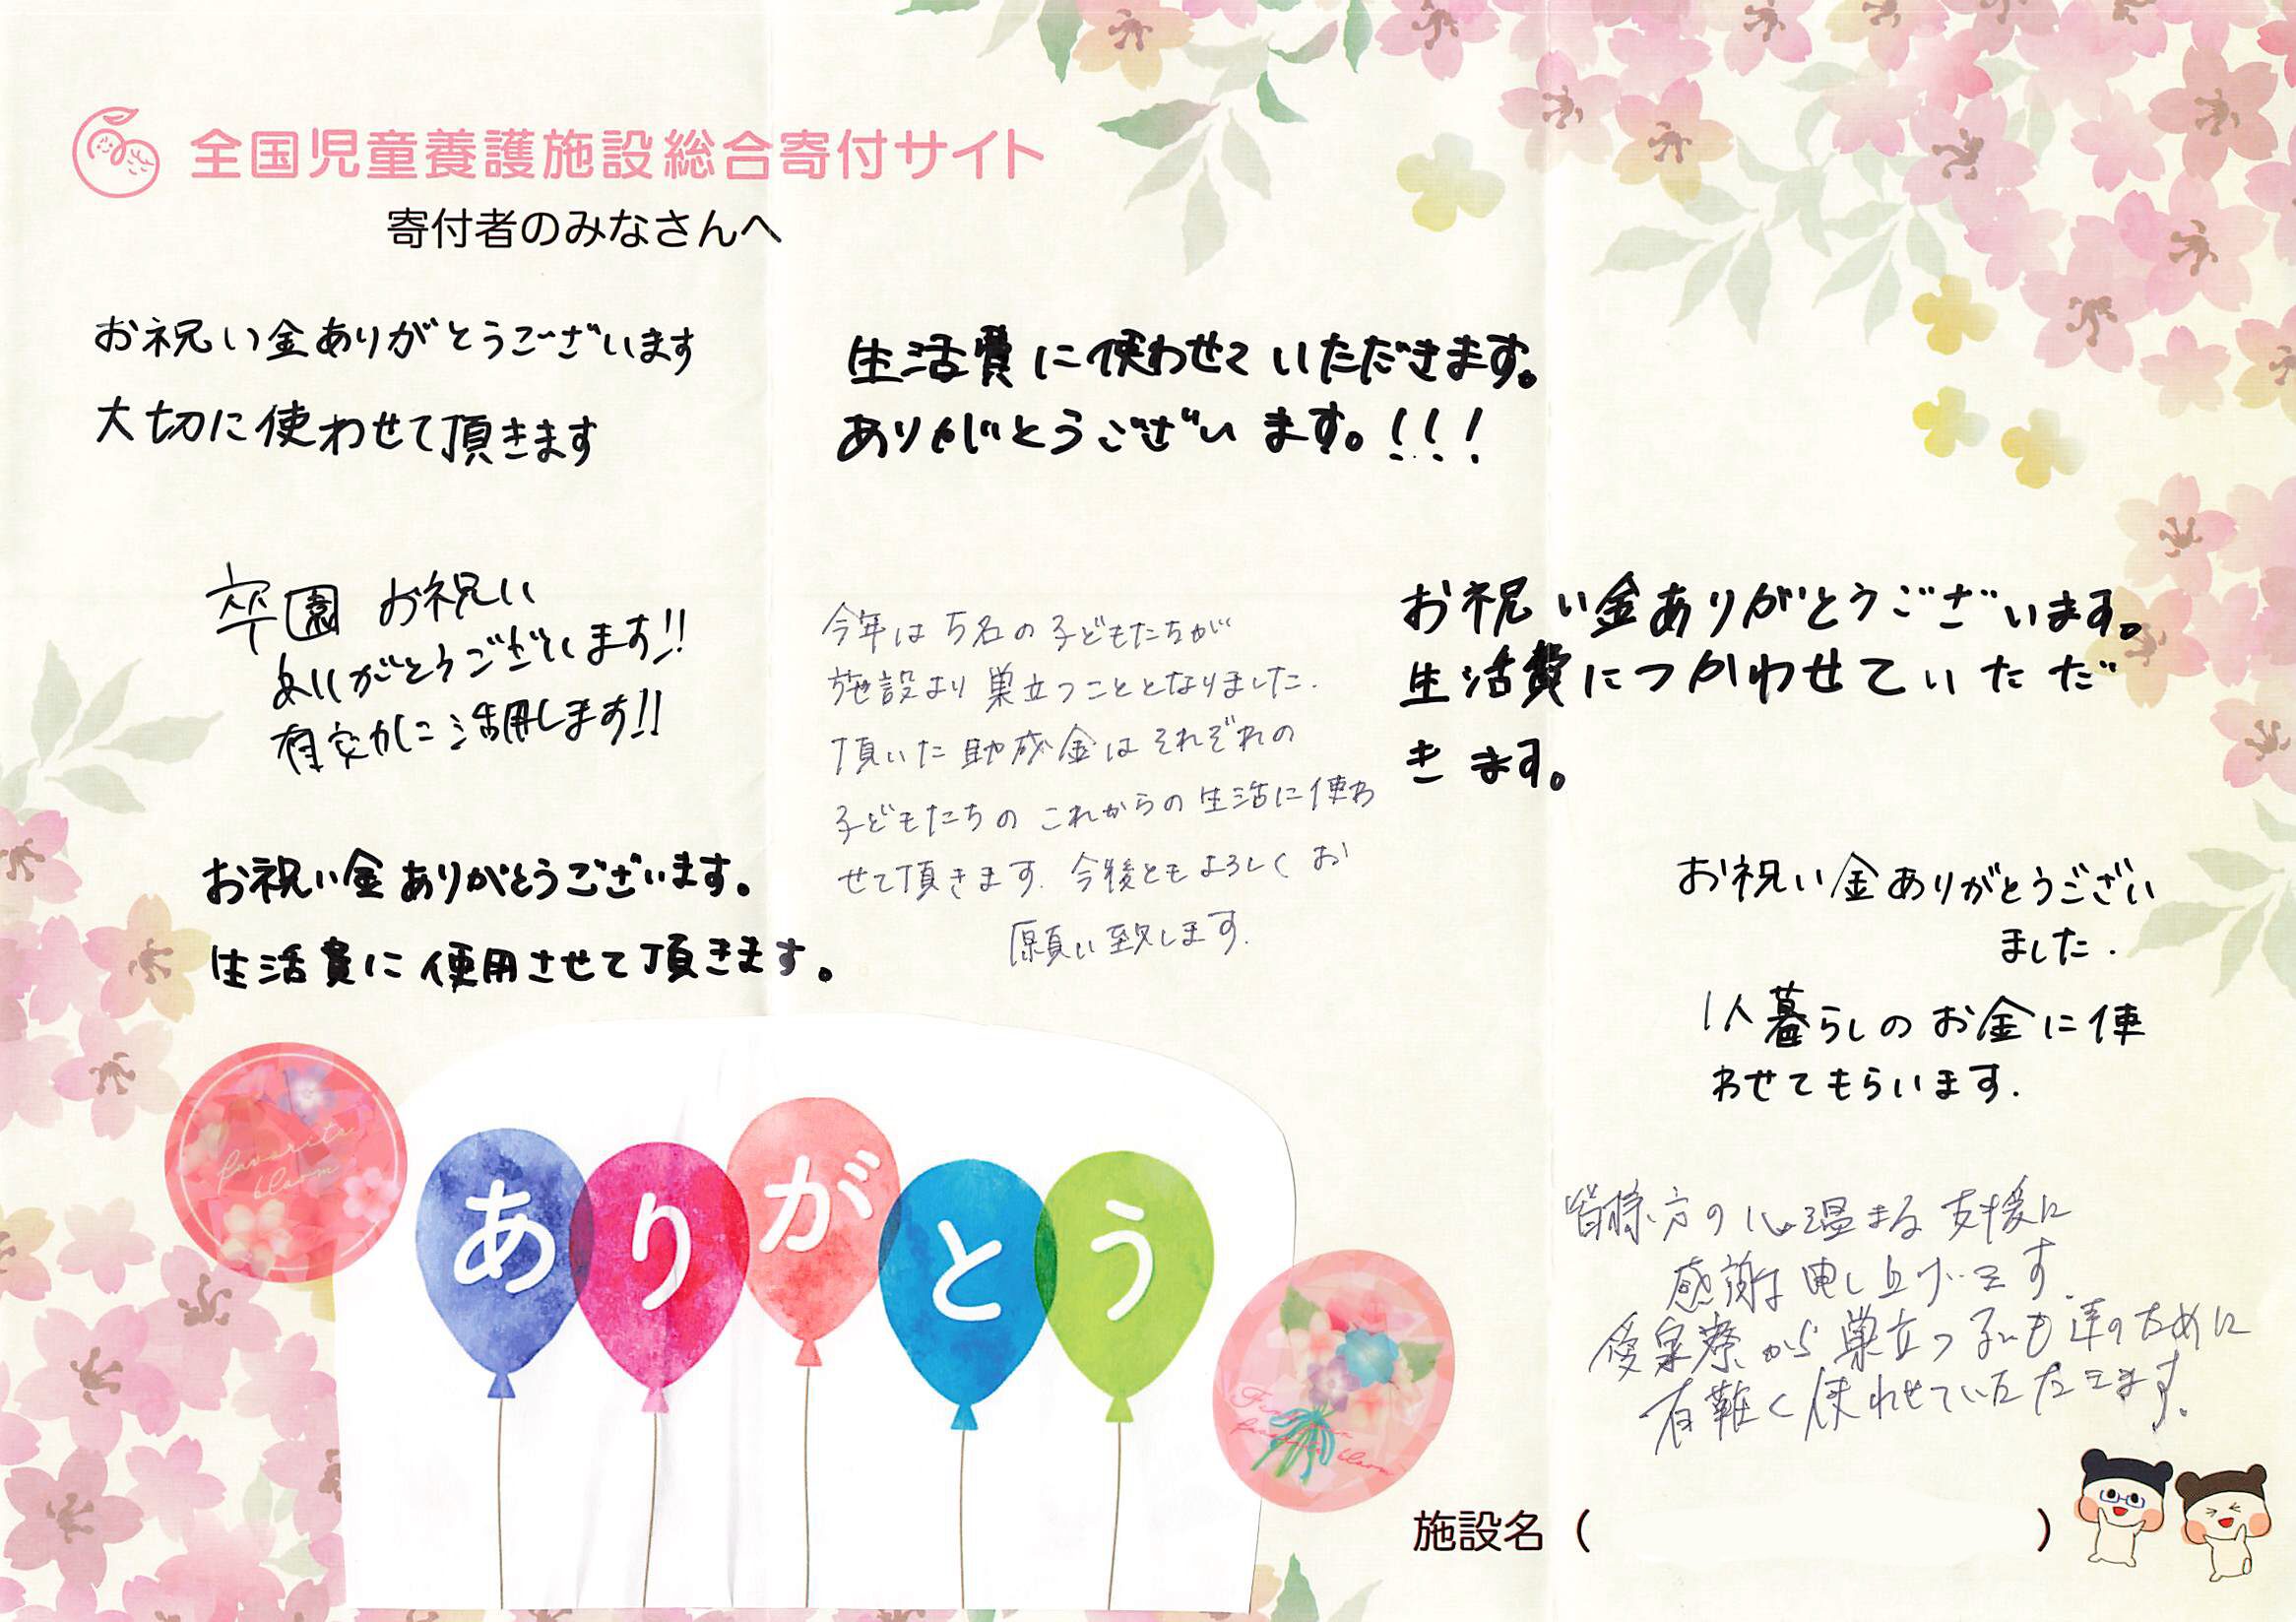 全国児童養護施設総合寄付サイト
寄付者のみなさんへ
お祝い金ありがとうございます
大切に使わせて頂きます
生活費に使わせていただきます。
ありがとうございます。!!!
卒園 お祝い
ありがとうございます!!
有効に活用します!!
今年は5名の子どもたちが
施設より巣立つこととなりました.
頂いた助成金はそれぞれの
子どもたちのこれからの生活に使わ
せて頂きます. 今後ともよろしくお
願い致します.
お祝い金ありがとうございます。
生活費につかわせていただ
きます。
お祝い金ありがとうございます。
生活費に使用させて頂きます。
お祝い金ありがとうござい
ました.
1人暮らしのお金に使
わせてもらいます.
皆様方の心温まる支援に
感謝申し上げます.
から巣立つ子ども達のために
有難く使わせていただきます。
favorite
bloom
ありがとう
bloom
施設名 ( )